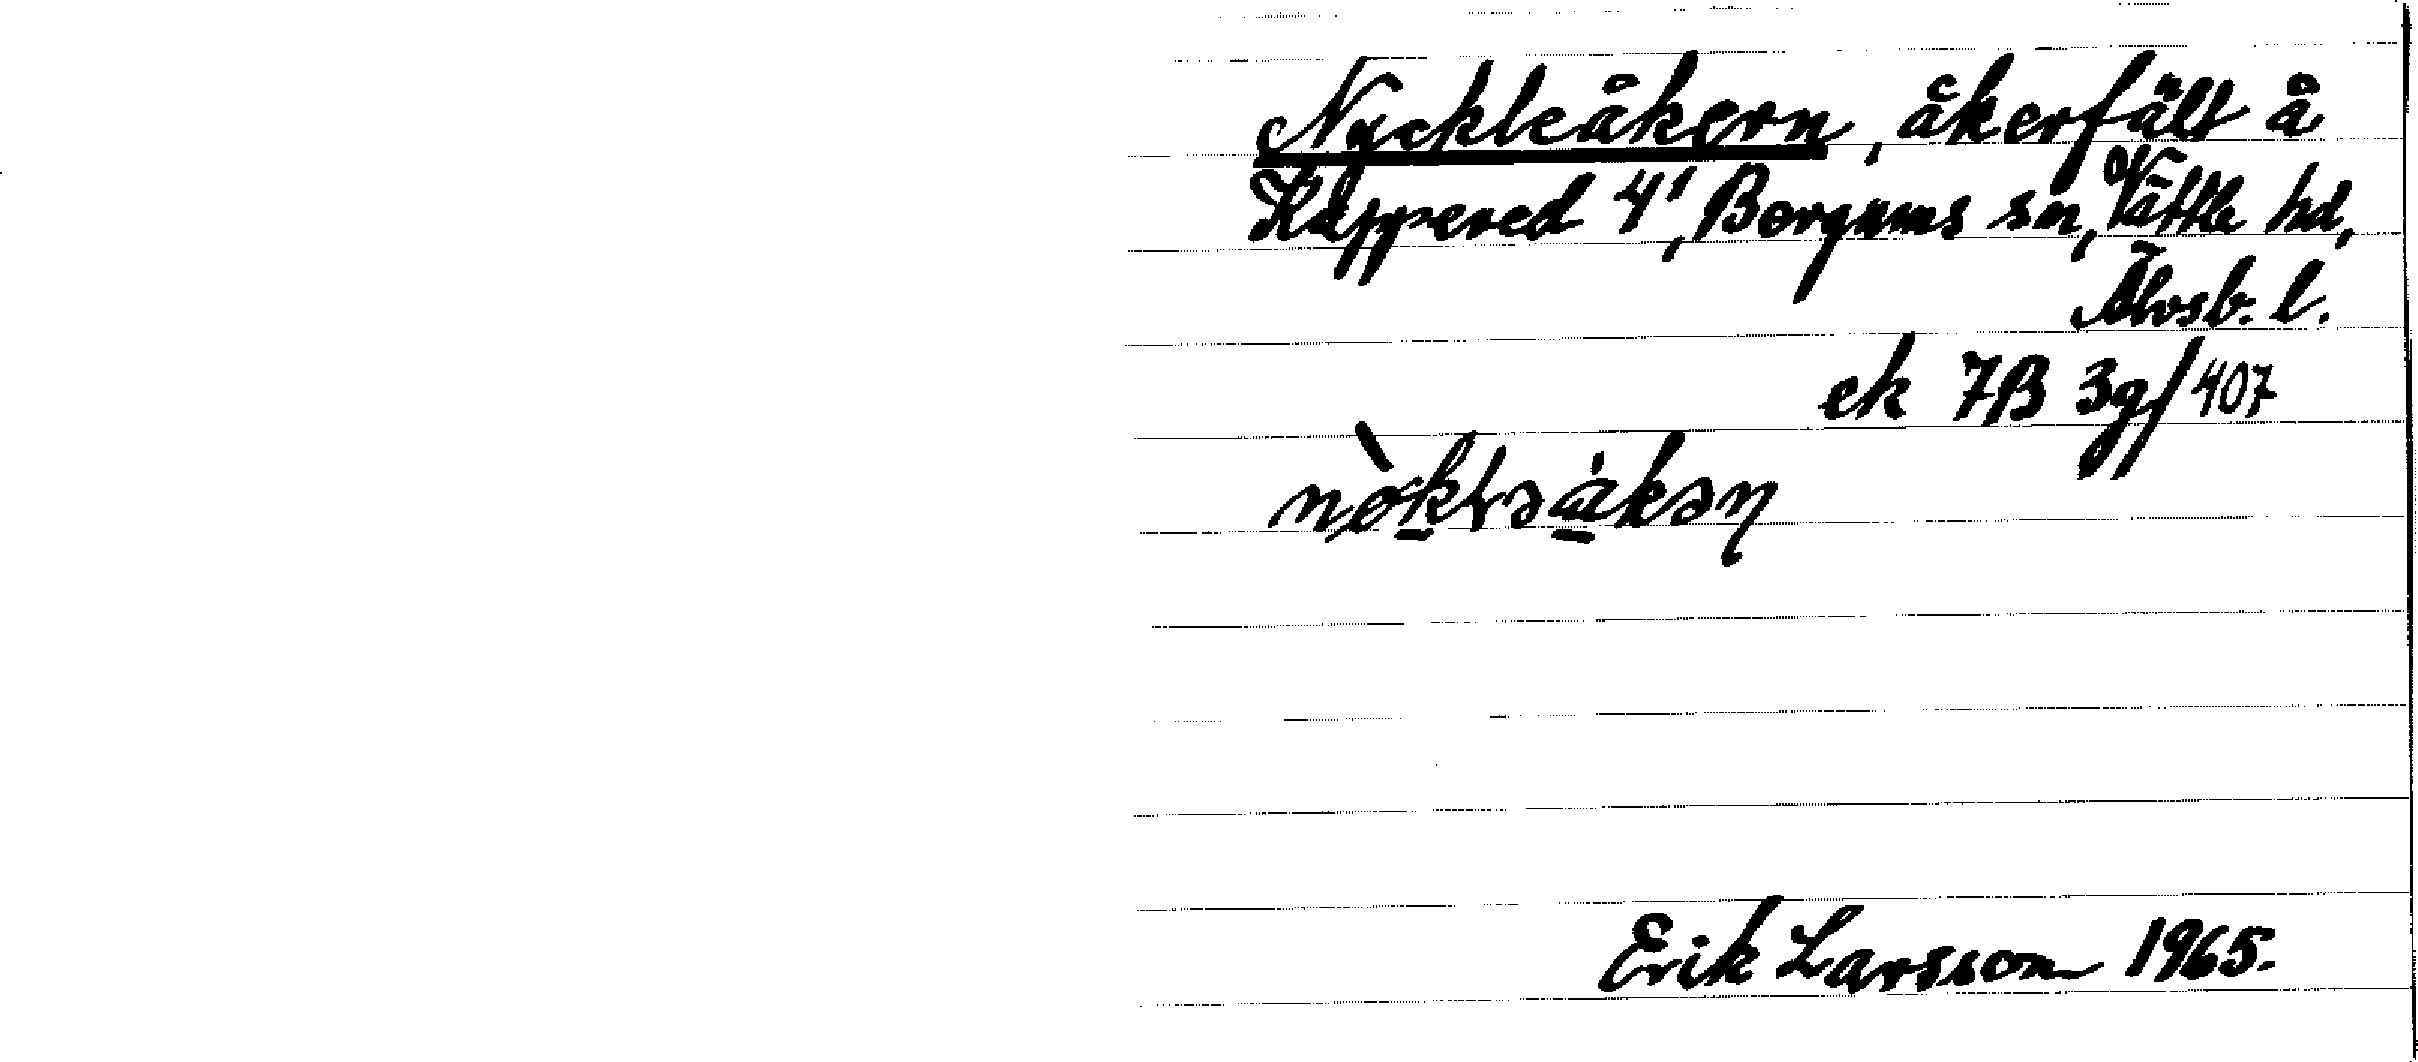 Nyckleåkern, åkerfält å
Käppered 4¹, Bergums sn, Vättle hd,
Älvsb. l.
ek 7B 3g/407
Erik Larsson 1965.